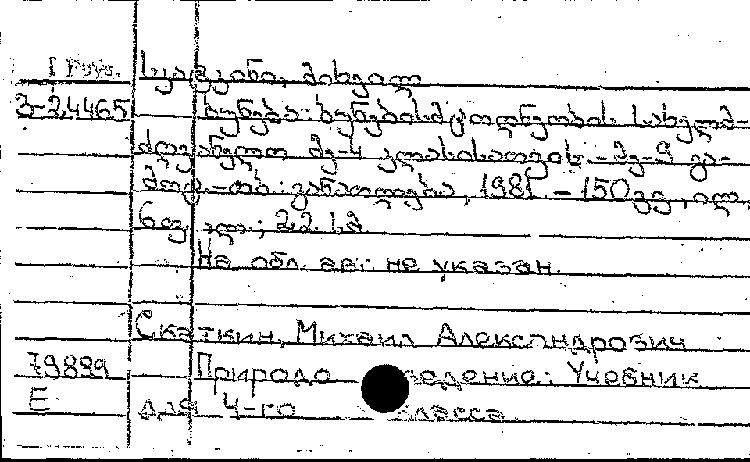 I Груз. სკატკინი, მიხეილ
3-2,4465 ბუნება: ბუნებისმცოდნეობის სახელმ-
ძღვანელო მე-4 კლასისათვის. – მე-9 გა-
მოც. – თბ.: განათლება, 1981 – 150 გვ., ილ.,
6 ფ. ილ.; 22 სმ
На обл. авт. не указан.
Скаткин, Михаил Александрович
79889 Природо ведение: Учебник
Е для 4-го класса